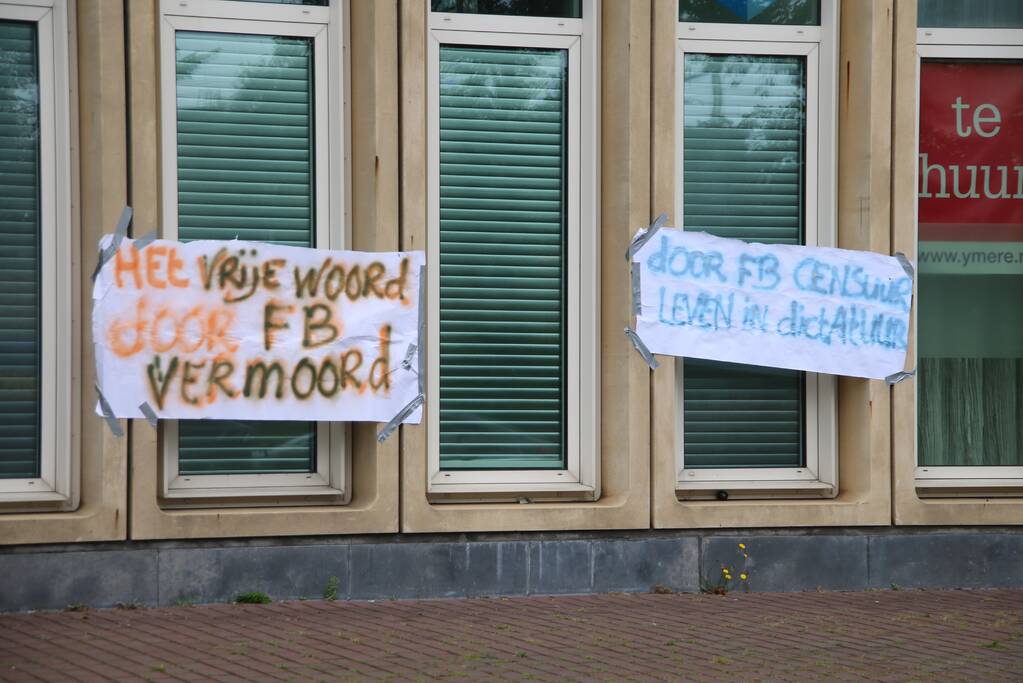 HEt VRIJE WOORD
dOOR FB
VERMOORd
dOOR FB CENSUUR
LEVEN iN dictAtUUR
te
huur
www.ymere.n